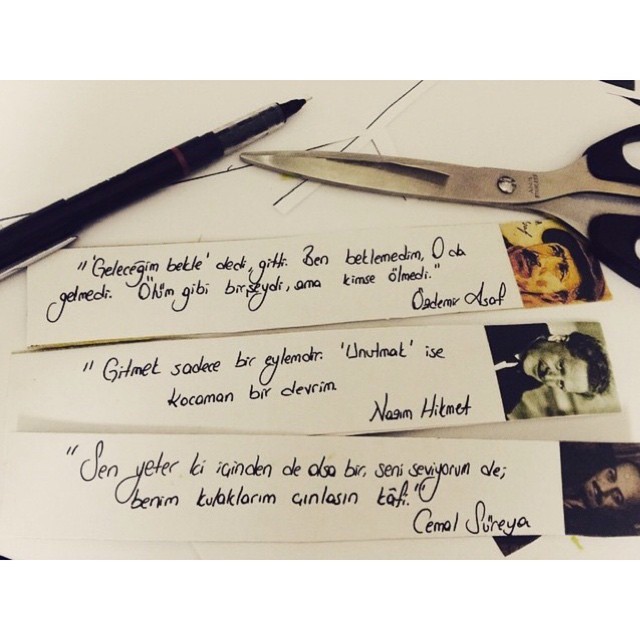 "'Geleceğim bekle' dedi, gitti. Ben beklemedim, O da
gelmedi. Ölüm gibi birşeydi, ama kimse ölmedi."
Özdemir Asaf
"Gitmek sadece bir eylemdir. 'Unutmak' ise
kocaman bir devrim
Nazım Hikmet
"Sen yeter ki içinden de olsa bir, seni seviyorum de;
benim kulaklarım çınlasın kâfi."
Cemal Süreya